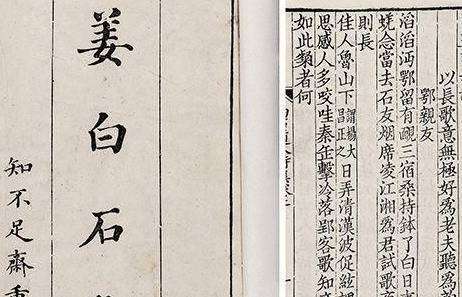 姜白石
知不足齋重
以長歌意無極好為老夫聽為
鄂親友
滔滔沔鄂留有靦三宿桑持鉢了白日
蜣念當去石友烟席凌江湘為君試歌
則長
佳人魯山下謂楊大昌正之日弄清漢波促絃
思感人多咬哇秦缶擊冷落郢客歌知
如此類者何